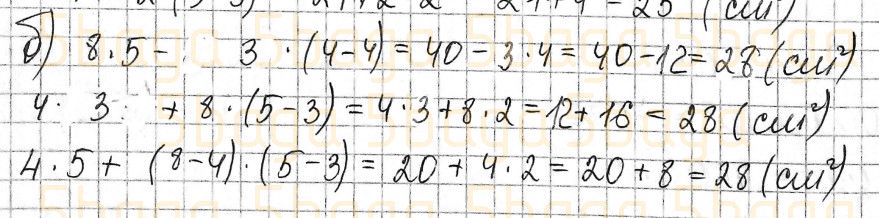 б) 8·5 - 3·(4-4) = 40 - 3·4 = 40 - 12 = 28 (см²)
4·3 + 8·(5-3) = 4·3 + 8·2 = 12 + 16 = 28 (см²)
4·5 + (8-4)·(5-3) = 20 + 4·2 = 20 + 8 = 28 (см²)